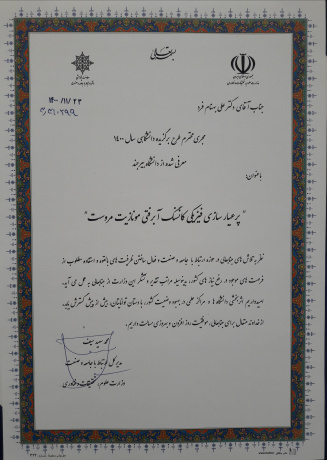 بسمه تعالی
۱۴۰۰/۱۱/۲۳
جناب آقای دکتر علی بهنام فرد
مجری محترم طرح برگزیده دانشگاهی سال ۱۴۰۰
معرفی شده از دانشگاه بیرجند
با عنوان:
"پرعیارسازی فیزیکی کانسنگ آبرفتی مونازیت مروست"
نظر به تلاش های جنابعالی در حوزه ارتباط با جامعه و صنعت و فعال ساختن ظرفیت های بالقوه و استفاده مطلوب از
فرصت های موجود در رفع نیاز های کشور، بدینوسیله مراتب تقدیر و تشکر این وزارت از جنابعالی به عمل می آید.
امید داریم اثربخشی دانشگاه ها و مراکز علمی در بهبود وضعیت کشور، با دستان توانایتان، بیش از پیش گسترش یابد.
از خداوند متعال برای جنابعالی، موفقیت روز افزون و بهروزی مسالت داریم.
محمد سعید سیف
مدیرکل ارتباط با جامعه و صنعت
وزارت علوم، تحقیقات و فناوری